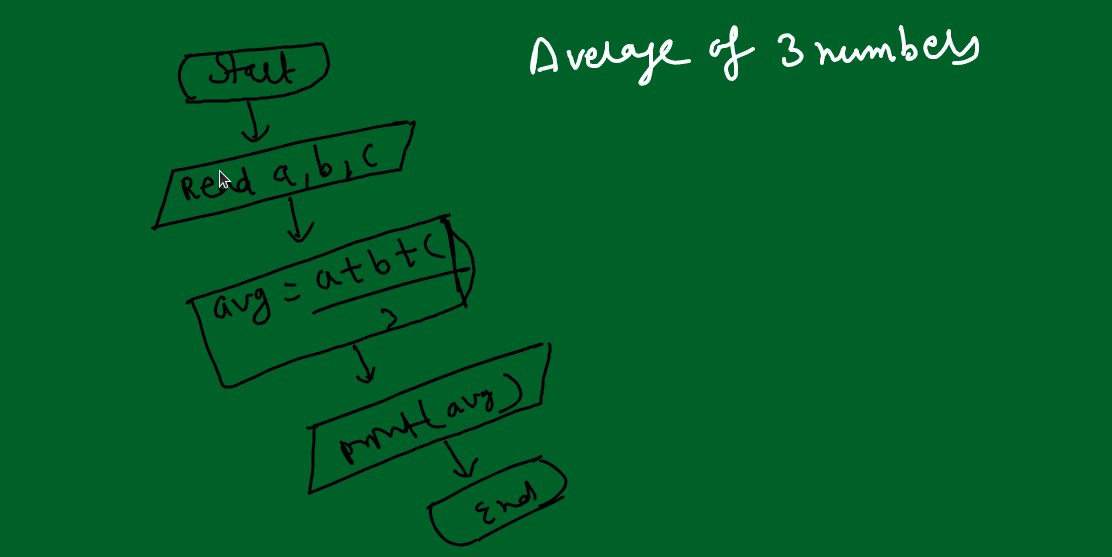 Average of 3 numbers
Start
Read a, b, c
avg = a+b+c
3
print(avg)
End